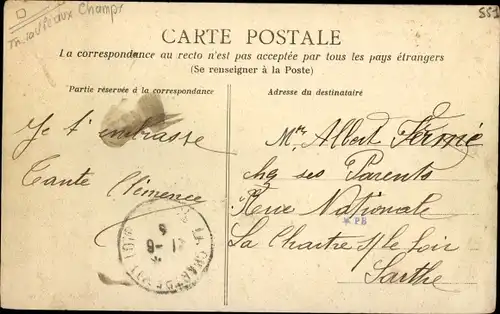 Champs
557
CARTE POSTALE
La correspondance au recto n'est pas acceptée par tous les pays étrangers
(Se renseigner à la Poste)
Partie réservée à la correspondance
Je t'embrasse
Tante Clémence
Adresse du destinataire
Mtre Albert Fermé
chez ses Parents
Rue Nationale
* PB
La Chartre s/le Loir
Sarthe
LA CHARTRE